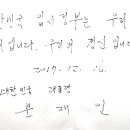 한민국 임시정부는 우리
입니다. 우리의 정신입니다
2017. 12. 16.
대한민국 대통령
문 재 인